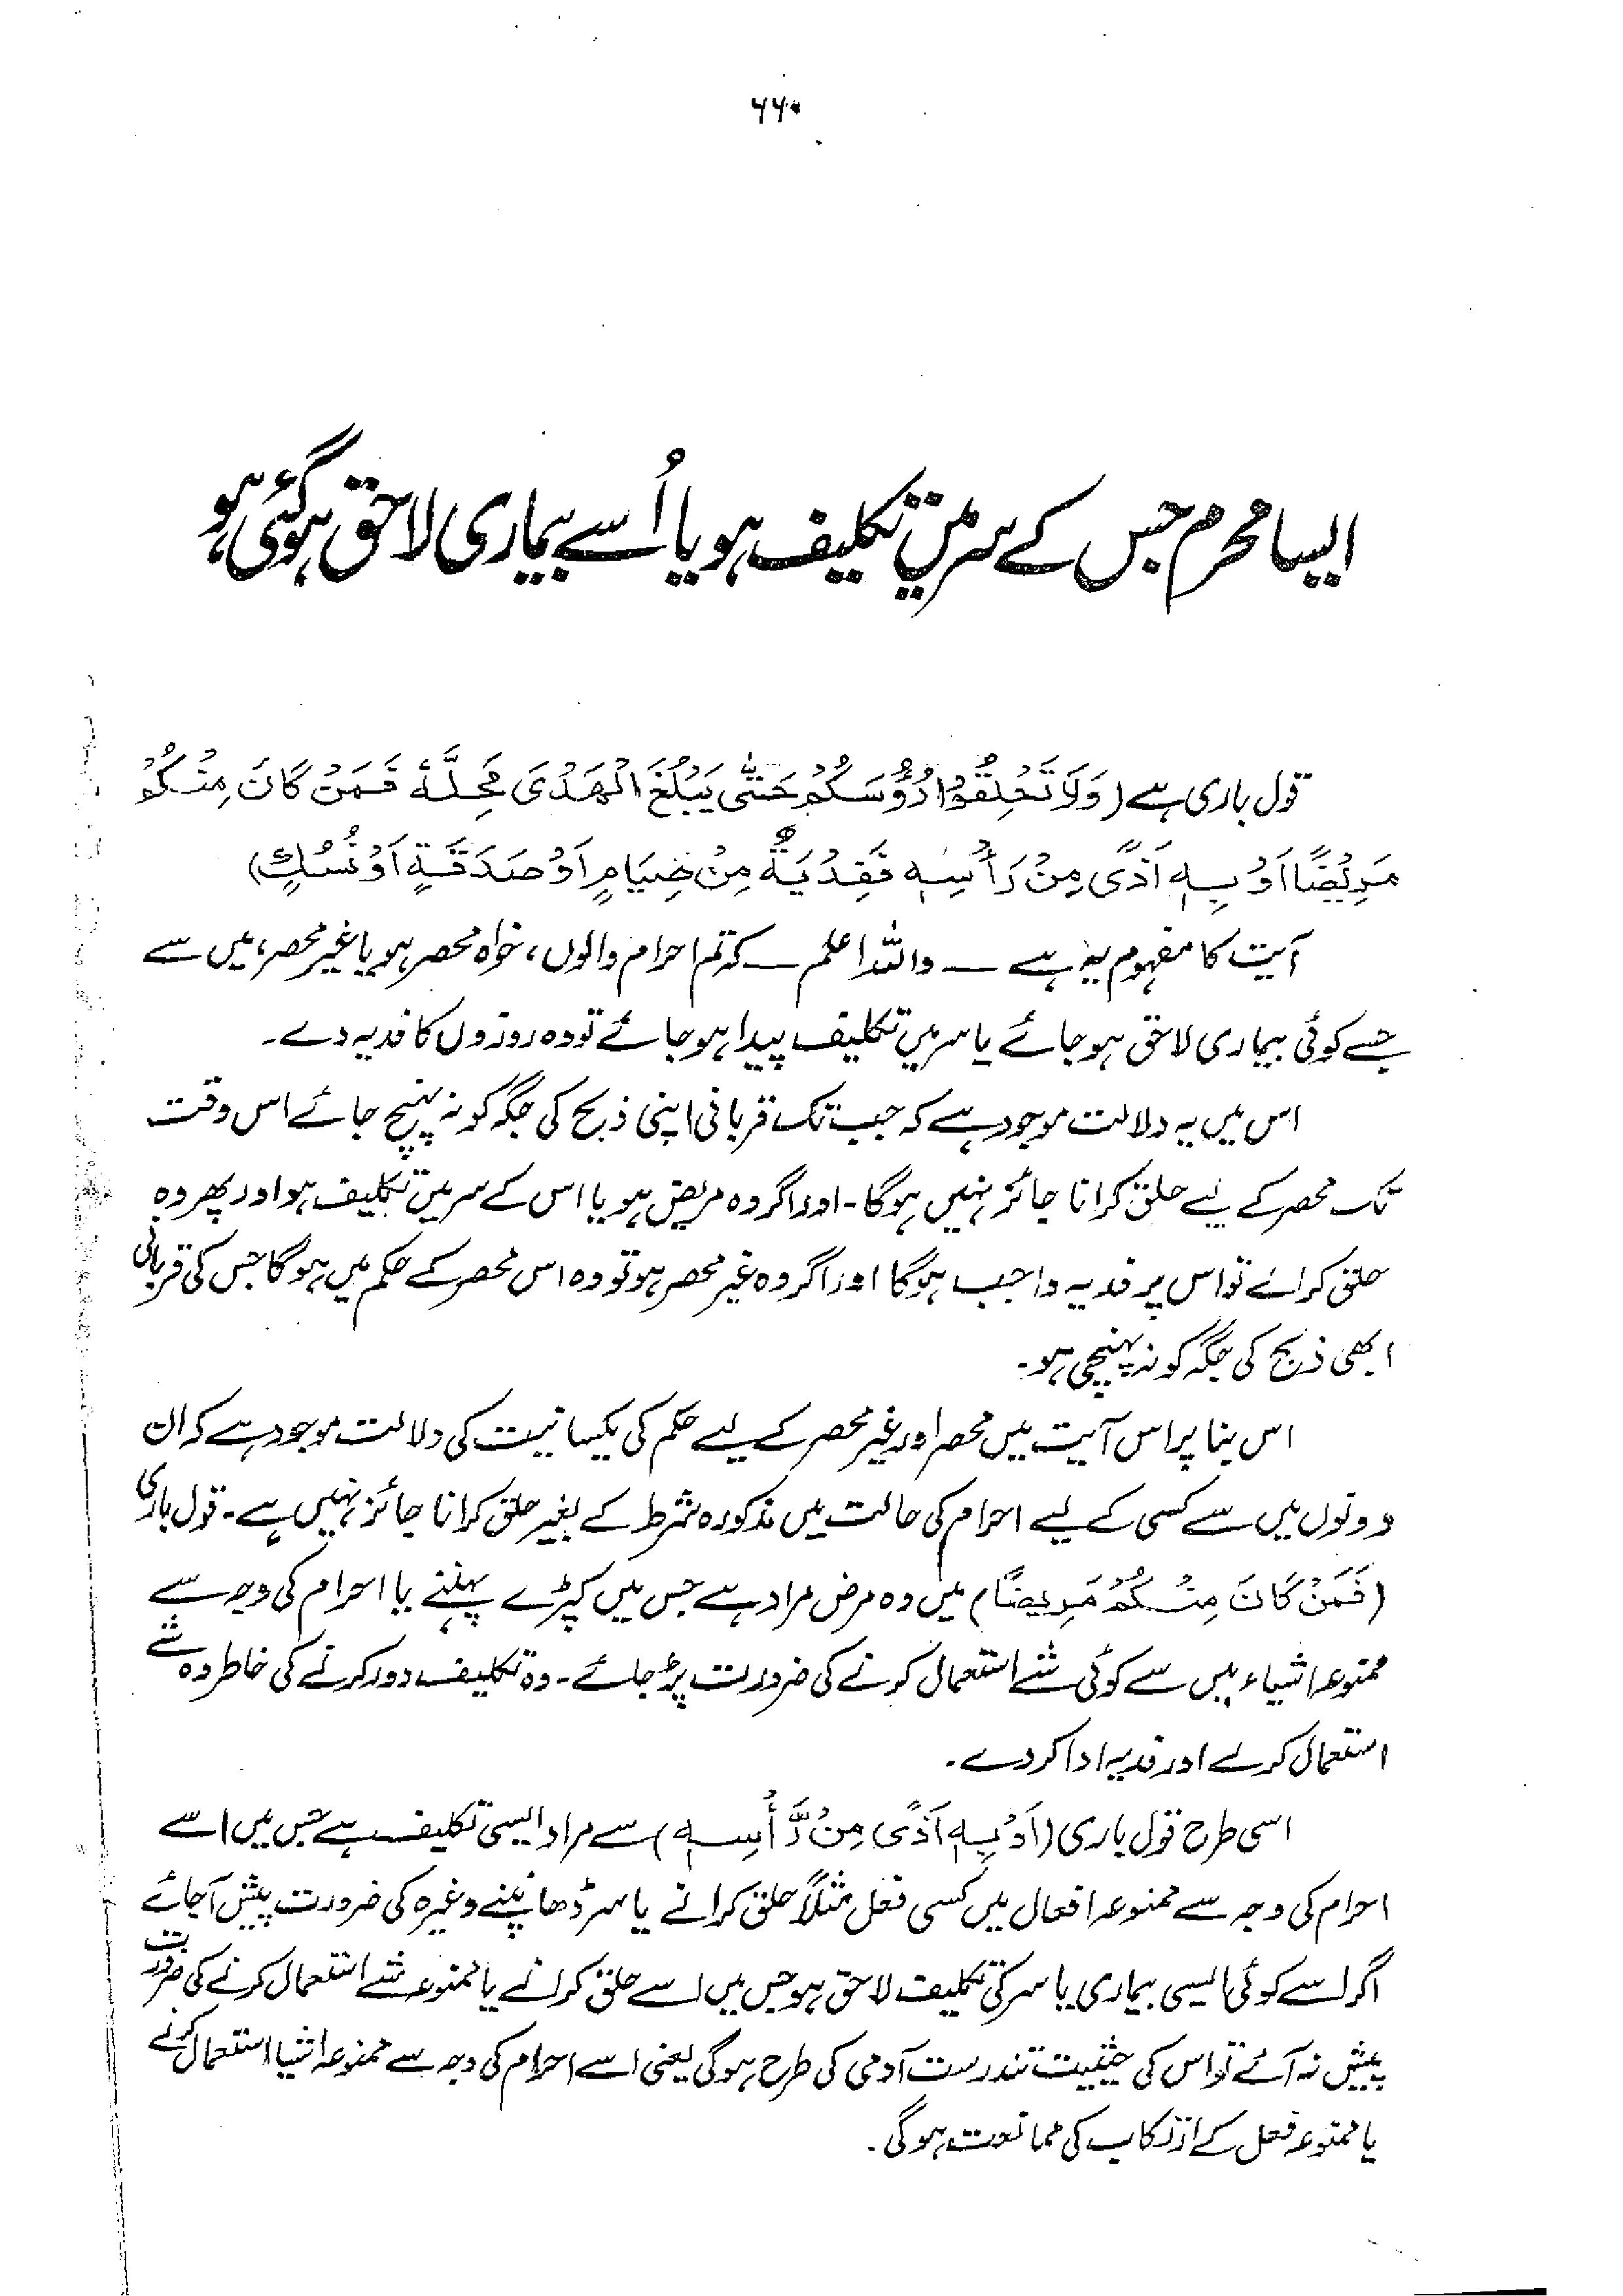 ۶۶۰
ایسا محرم جس کے سر میں تکلیف ہو یا اُسے بیماری لاحق ہو گئی ہو
قول باری ہے (وَلَا تَحْلِقُوْا رُؤُوْسَكُمْ حَتّٰى يَبْلُغَ الْهَدْىَ مَحِلَّهٗ فَمَنْ كَانَ مِنْكُمْ
مَرِيْضًا اَوْ بِهٖ اَذًى مِنْ رَأْسِهٖ فَفِدْيَةٌ مِنْ صِيَامٍ اَوْ صَدَقَةٍ اَوْ نُسُكٍ)
آیت کا مفہوم یہ ہے — واللہ اعلم — کہ تم احرام والوں، خواہ محصر ہو یا غیر محصر، میں سے
جسے کوئی بیماری لاحق ہو جائے یا سر میں تکلیف پیدا ہو جائے تو وہ روزوں کا فدیہ دے۔
اس میں یہ دلالت موجود ہے کہ جب تک قربانی اپنی ذبح کی جگہ کو نہ پہنچ جائے اس وقت
تک محصر کے لیے حلق کرانا جائز نہیں ہوگا۔ اور اگر وہ مریض ہو یا اس کے سر میں تکلیف ہو اور پھر وہ
حلق کرائے تو اس پر فدیہ واجب ہوگا اور اگر وہ غیر محصر ہو تو وہ اس محصر کے حکم میں ہوگا جس کی قربانی
ابھی ذبح کی جگہ کو نہ پہنچی ہو۔
اس بنا پر اس آیت میں محصر اور غیر محصر کے لیے حکم کی یکسانیت کی دلالت موجود ہے کہ ان
دونوں میں سے کسی کے لیے احرام کی حالت میں مذکورہ شرط کے بغیر حلق کرانا جائز نہیں ہے۔ قول باری
(فَمَنْ كَانَ مِنْكُمْ مَرِيضًا) میں وہ مرض مراد ہے جس میں کپڑے پہننے یا احرام کی وجہ سے
ممنوعہ اشیاء میں سے کوئی شے استعمال کرنے کی ضرورت پڑ جائے۔ وہ تکلیف دور کرنے کی خاطر وہ شے
استعمال کر لے اور فدیہ ادا کر دے۔
اسی طرح قول باری (اَوْ بِهٖ اَذًى مِنْ رَّأْسِهٖ) سے مراد ایسی تکلیف ہے جس میں اسے
احرام کی وجہ سے ممنوعہ افعال میں کسی فعل مثلاً حلق کرانے یا سر ڈھانپنے وغیرہ کی ضرورت پیش آ جائے
اگر اسے کوئی ایسی بیماری یا سر کی تکلیف لاحق ہو جس میں اسے حلق کرانے یا ممنوعہ شے استعمال کرنے کی ضرورت
پیش نہ آئے تو اس کی حیثیت تندرست آدمی کی طرح ہوگی یعنی اسے احرام کی وجہ سے ممنوعہ اشیا استعمال کرنے
یا ممنوعہ فعل کے ارتکاب کی ممانعت ہوگی۔